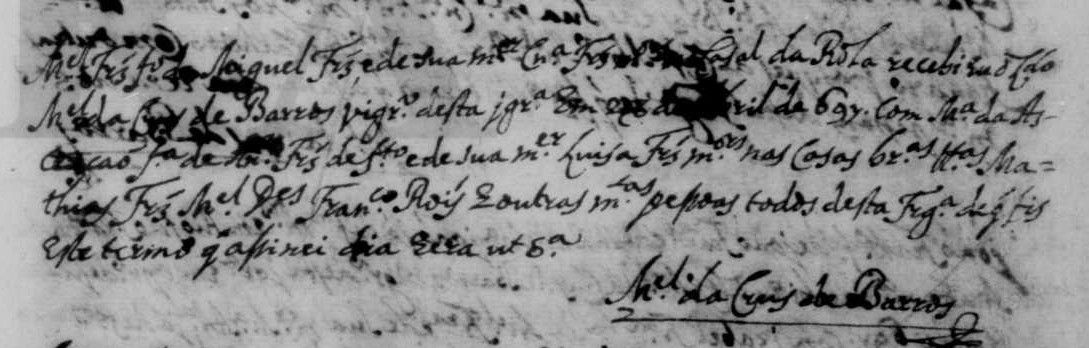 M.el Frz f.º de Miguel Frz, e de sua m.er Cn.ª Frz Casal da Rola recebi
M.el da Cruz de Barros vigr.º desta jgr.ª Em de Abril de 697. Com M.ª da As-
cençaõ f.ª de Frz de f.to e de sua m.er Luisa Frz m.ores nas Casas br.as tt.as Ma=
thias Frz M.el Fran.co Roiz e outras m.tas pessoas todos desta Frg.ª de q̃ fis
Este termo q̃ assinei dia Era ut s.ª
M.el da Crus de Barros